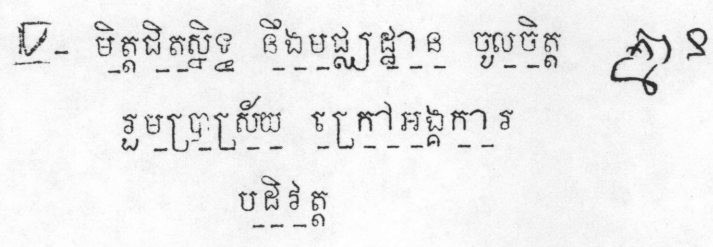 V- មិត្តជិតស្និទ្ធ នឹងមជ្ឈដ្ឋាន ចូលចិត្ត
រួមប្រាស្រ័យ ក្រៅអង្គការ
បដិវត្ត